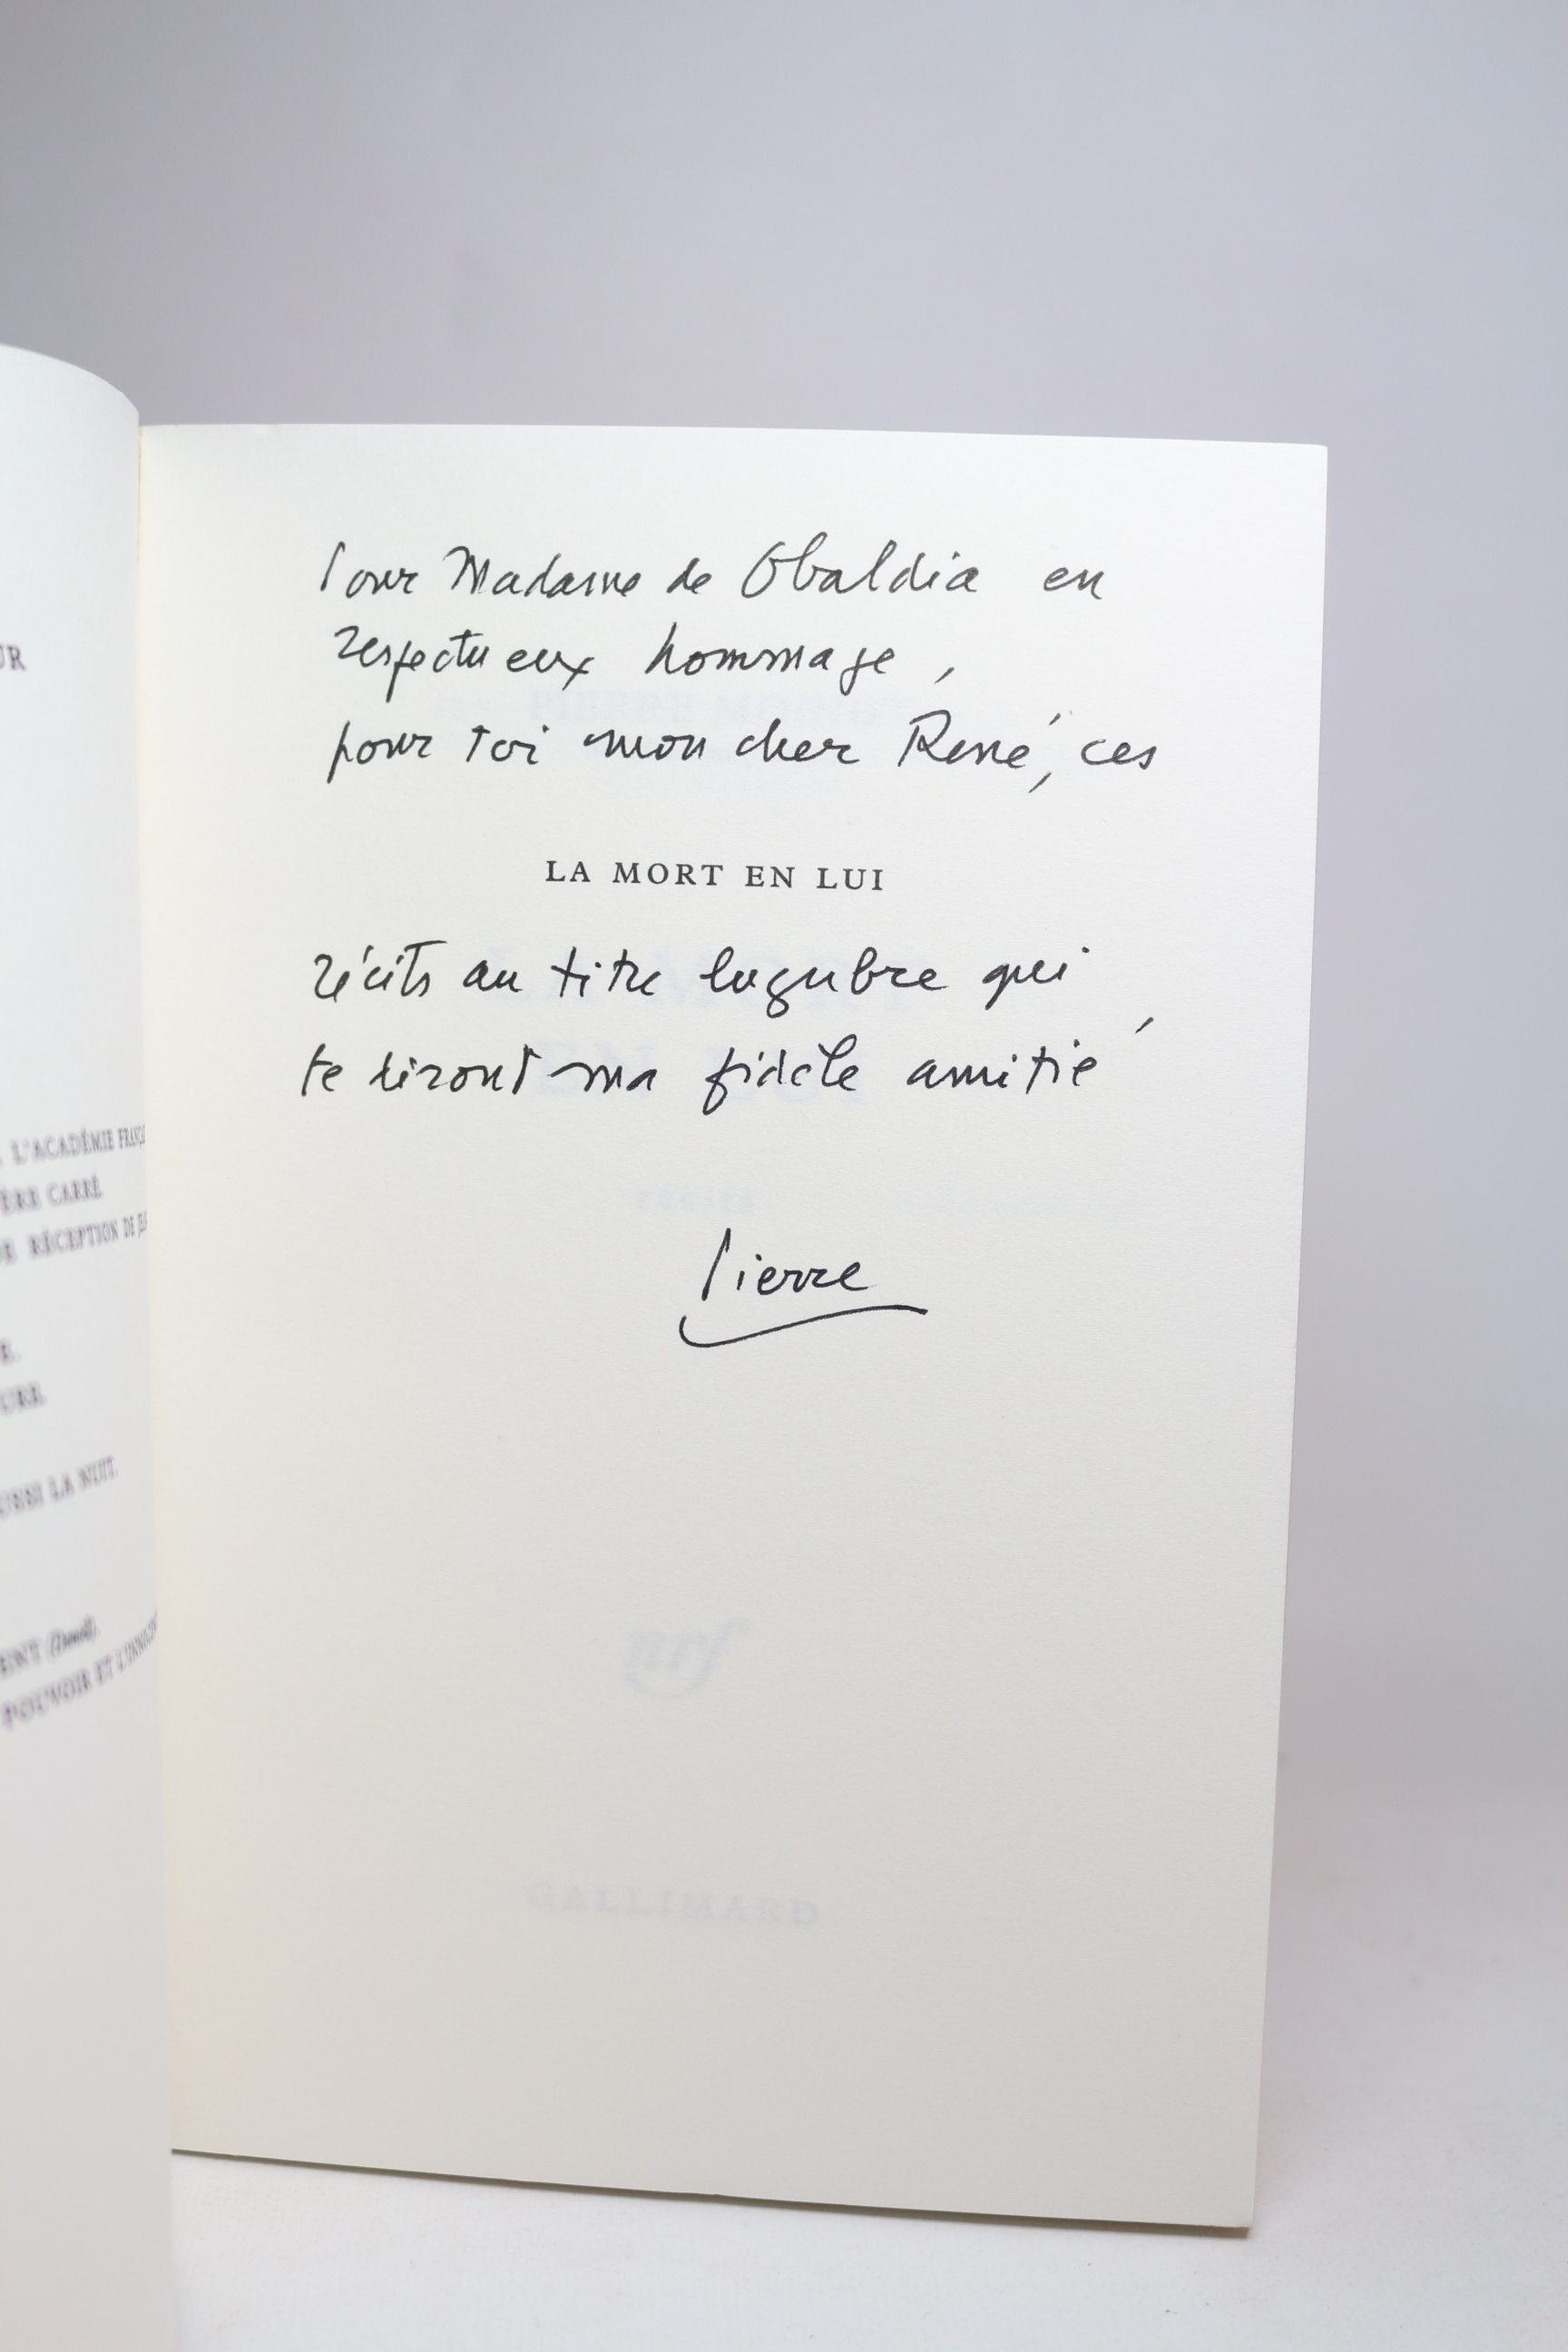 UR
L'ACADÉMIE FRANÇ
ÈRE CARRÉ
DE RÉCEPTION DE
E.
URE.
USSI LA NUIT.
MONT (Denoël).
POUVOIR ET L'INNOCEN
Pour Madame de Obaldia en
respectueux hommage,
pour toi mon cher René, ces
PIERRE MOINOT
LA MORT EN LUI
récits au titre lugubre qui
te diront ma fidèle amitié
LA MORT
EN LUI
récits
Pierre
nrf
GALLIMARD